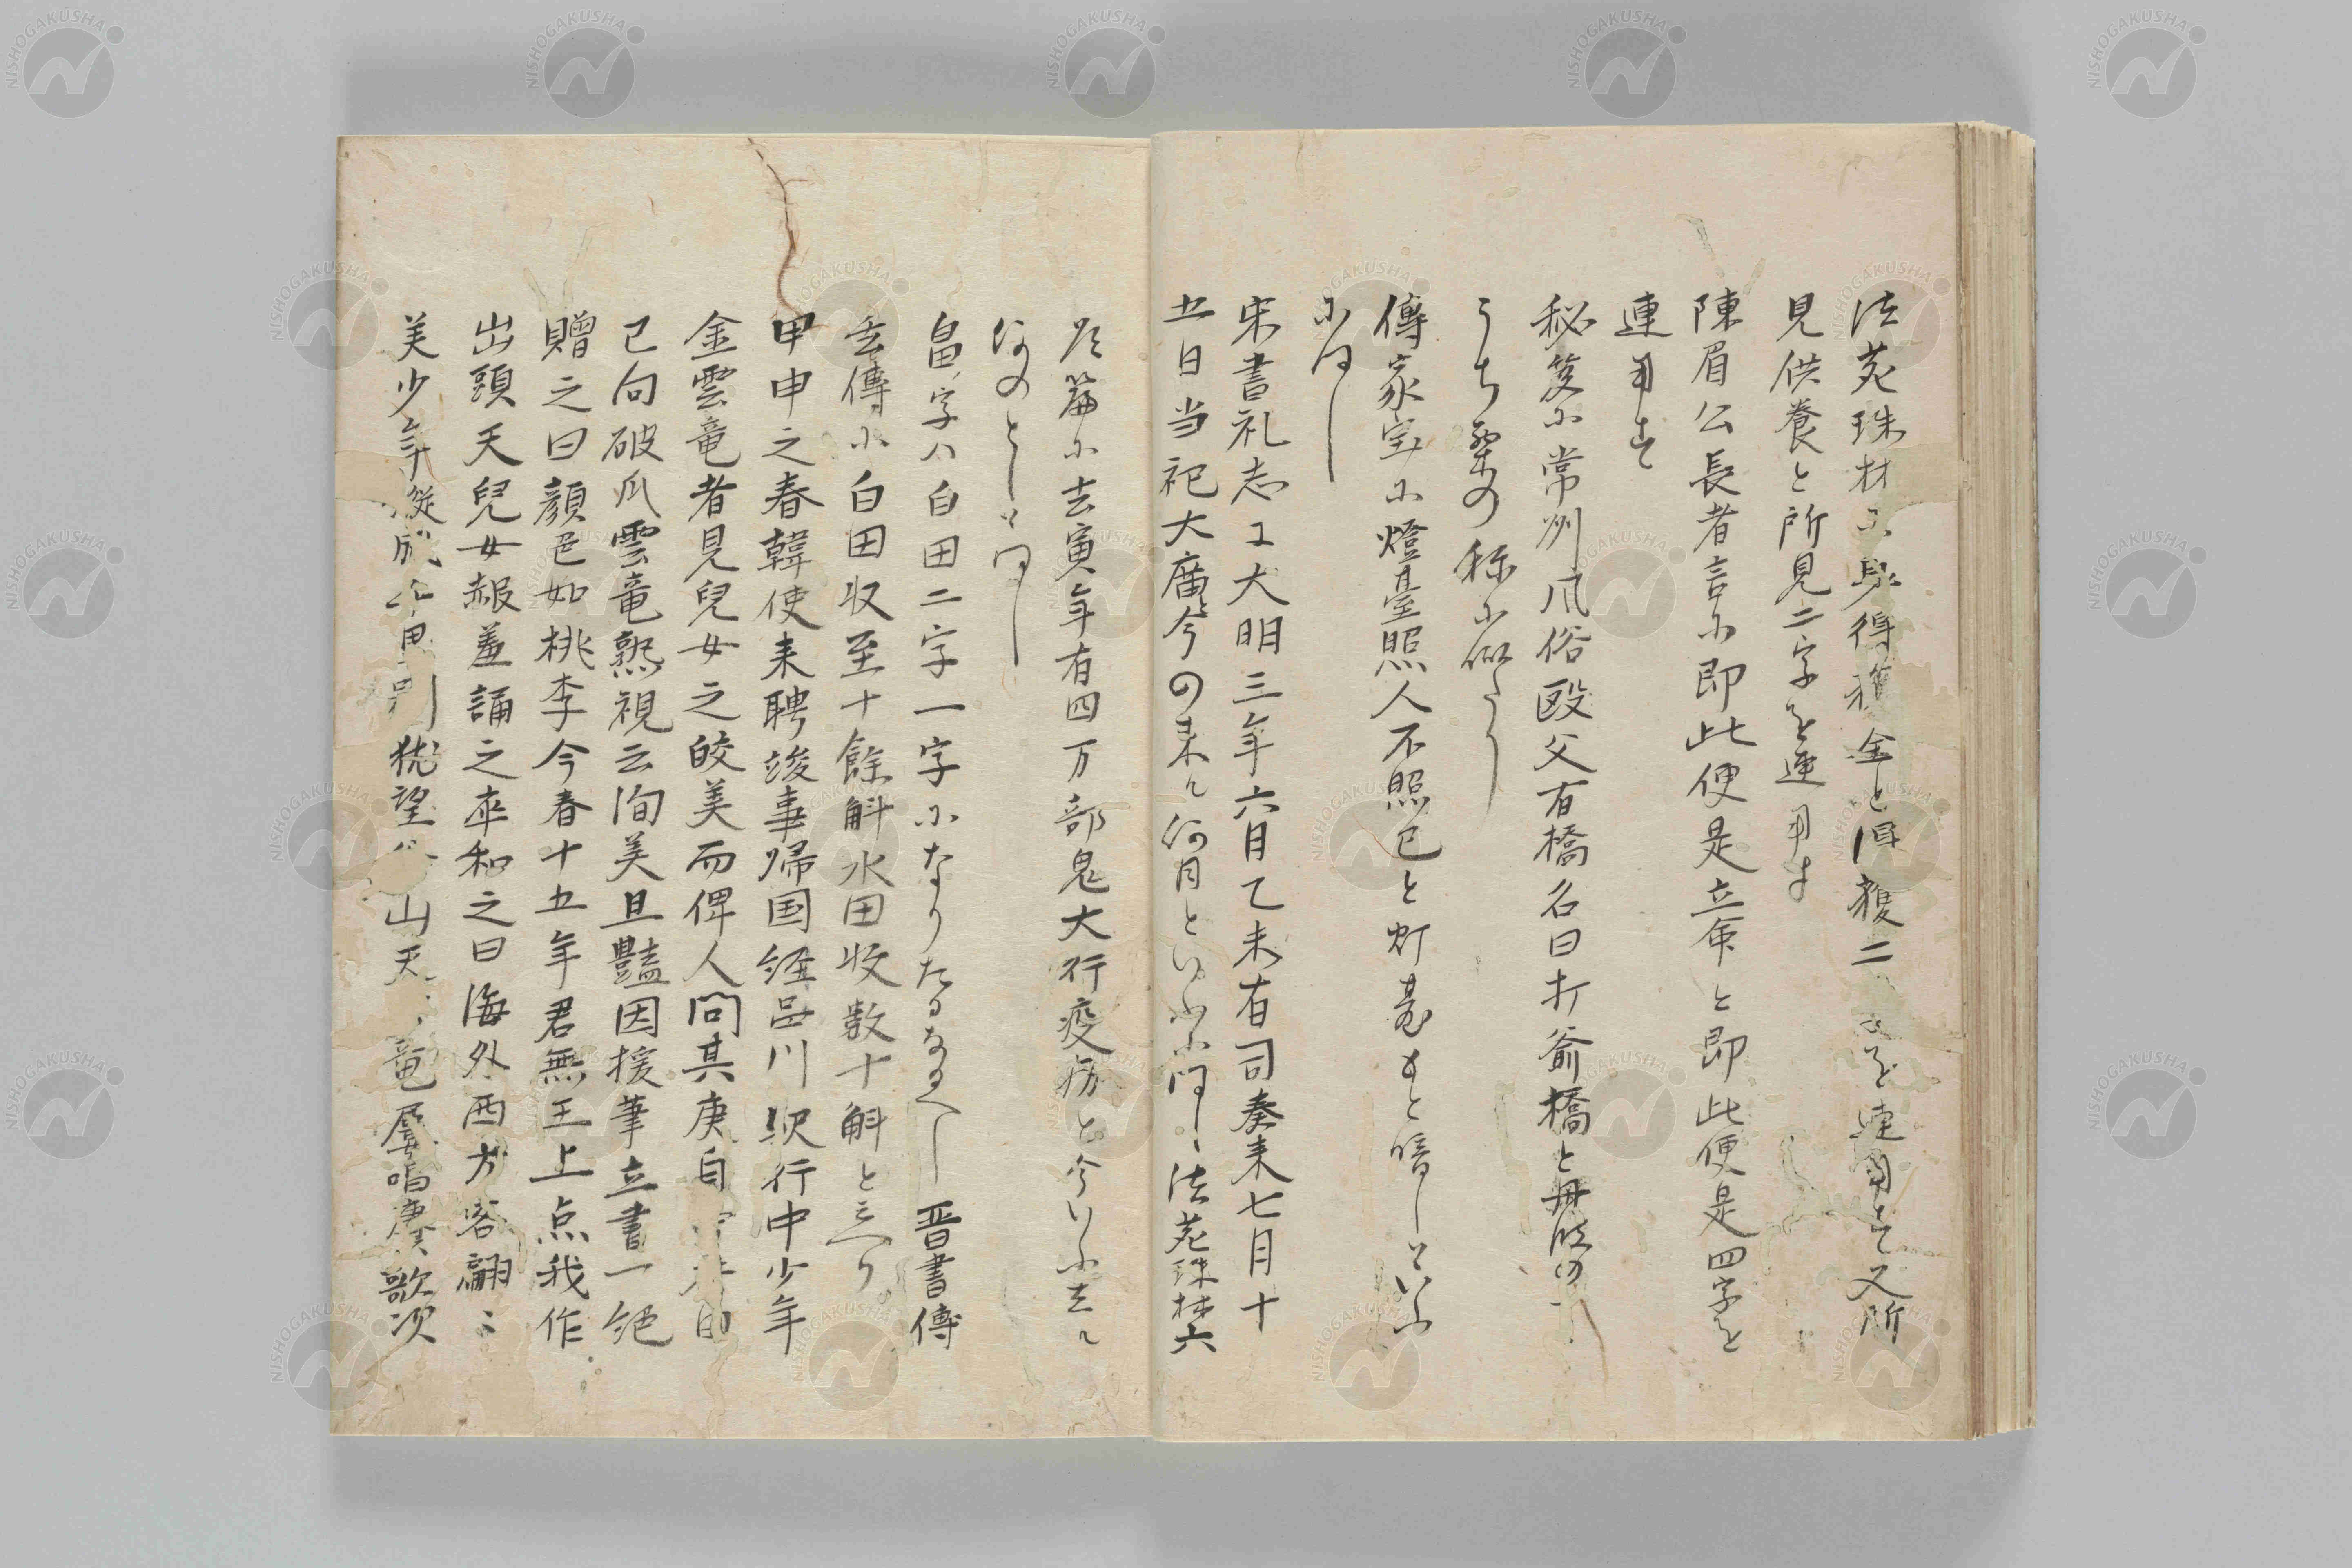 法苑珠林ニ□得獲金と得獲二□を連用す又所
見供養と所見二字を連用す
陳眉公長者言ニ即此便是立命と即此便是四字を
連用す
秘笈ニ常州風俗殴父有橋名曰打爺橋と
うち□の称ニ似たり
傳家宝ニ燈臺照人不照己と灯臺もと暗しといふ
に同し
宋書礼志に大明三年六月乙未有司奏来七月十
五日当祀大廟今の来ル何月といふに同し、法苑珠林六
篇ニ去寅年有四万部鬼大行疫癘と今いふ去ル
何のとしと同し
畠ノ字ハ白田二字一字ニなりたるなるへし 晋書傅
玄傳ニ白田収至十餘斛水田收数十斛と云へり
甲申之春韓使来聘竣事帰国経品川駅行中少年
金雲竜者見兒女之皎美而俾人問其庚自
已向破瓜雲竜熟視云洵美且豔因援筆立書一絶
贈之曰顔色如桃李今春十五年君無王上点我作
出頭天兒女赧羞誦之率和之曰海外西方客翩〻
美少年縦成□□別猶望□山天□竜屡唱廣歌次
NISHOGAKUSHA